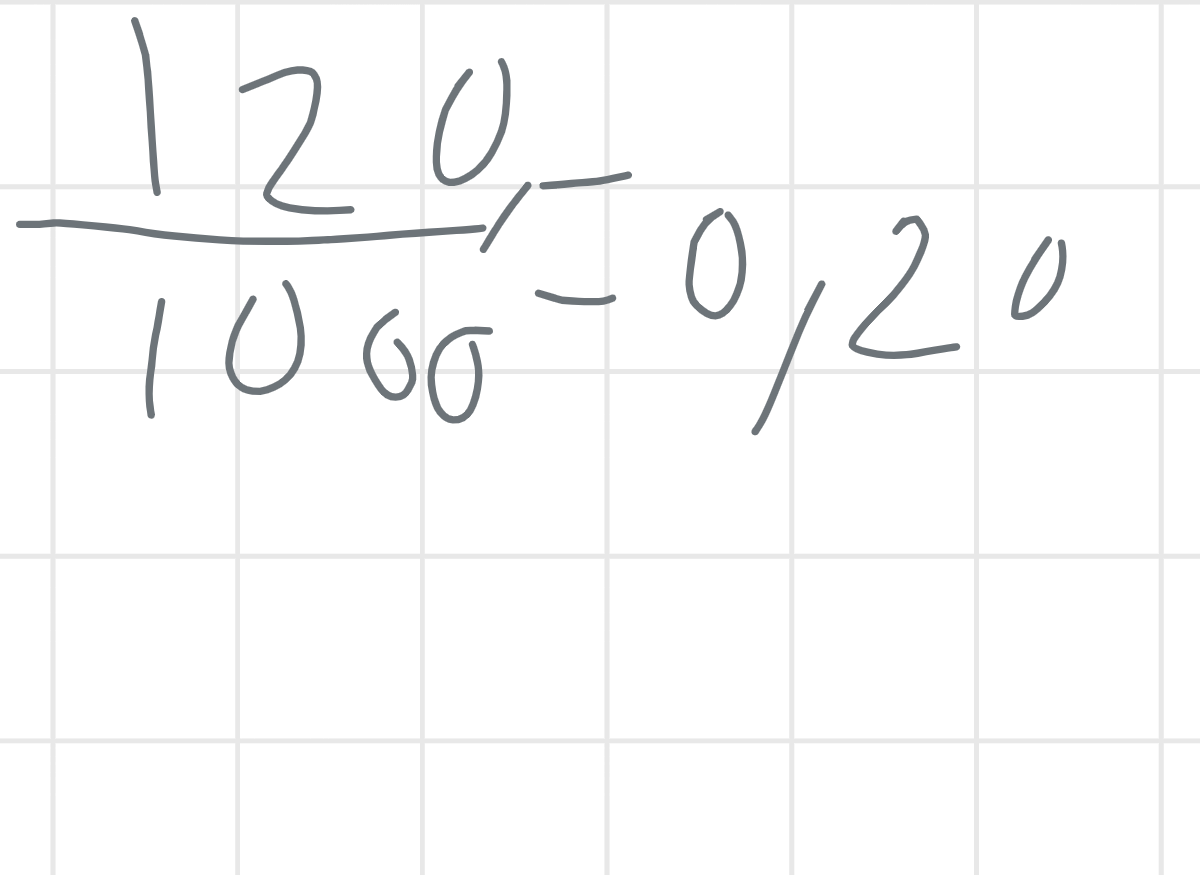 120
1000 = 0,20